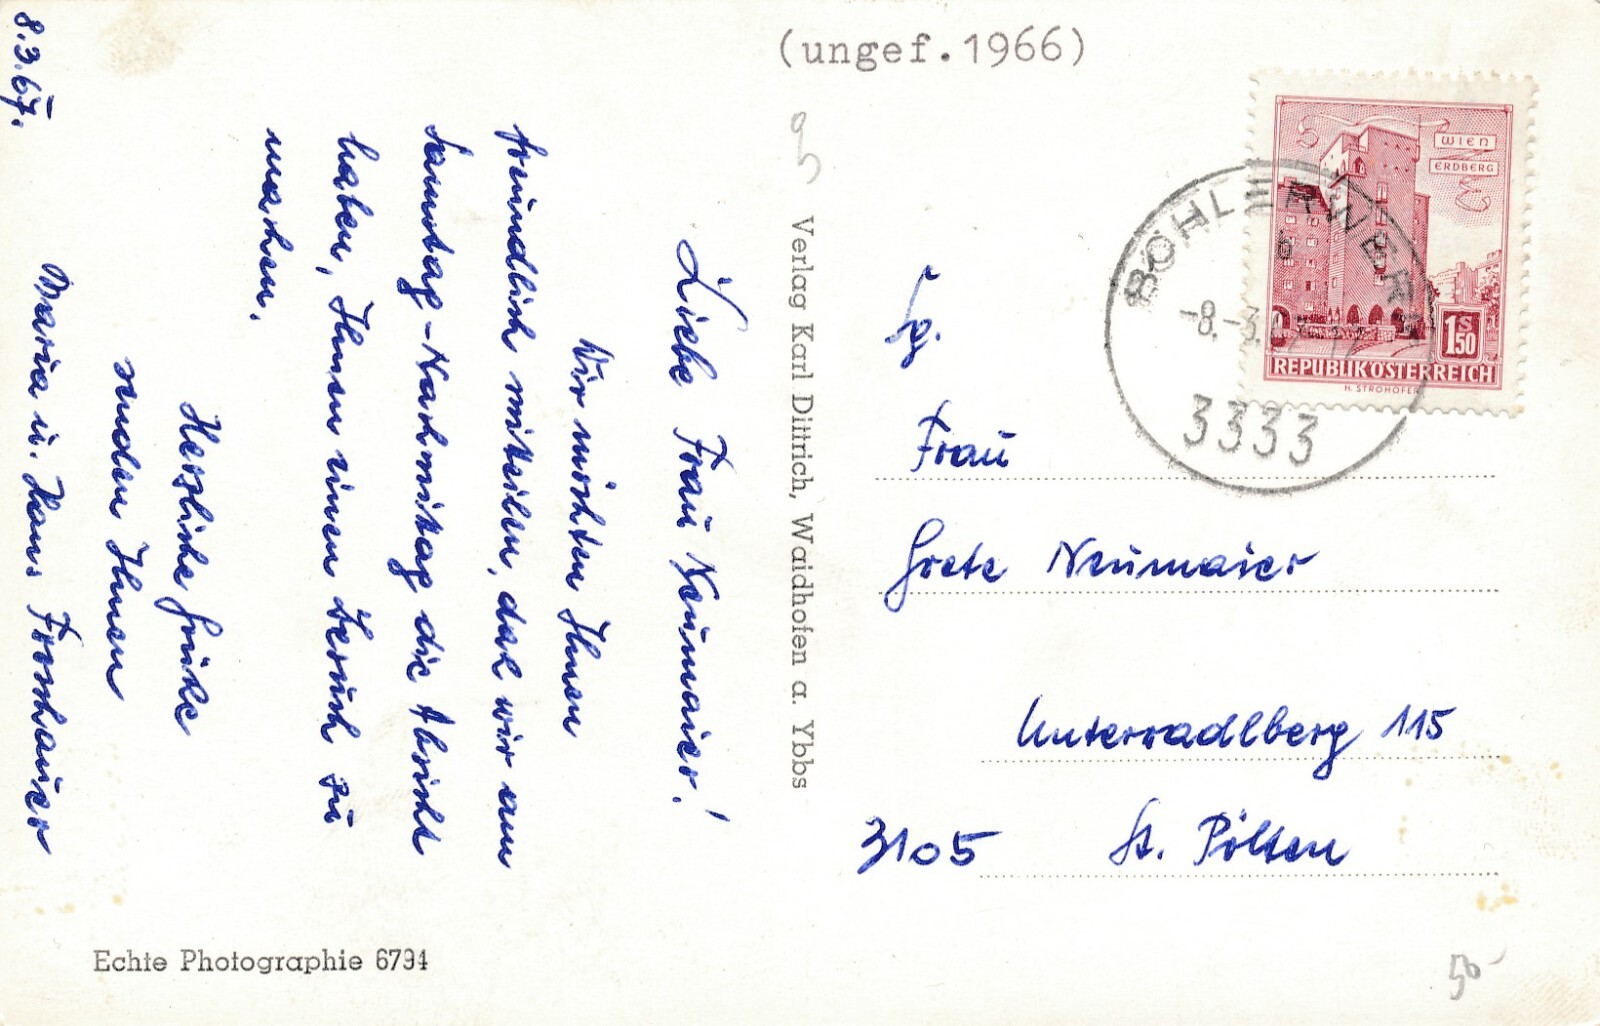 8.3.67.
Liebe Frau Neumaier!
Wir möchten Ihnen
freundlich mitteilen, daß wir am
Samstag-Nachmittag die Absicht
haben, Ihnen einen Besuch zu
machen.
Herzliche Grüße
senden Ihnen
Maria u. Hans Fromhauer
Echte Photographie 6794
Verlag Karl Dittrich, Waidhofen a. Ybbs
(ungef. 1966)
WIEN
ERDBERG
1S50
REPUBLIK ÖSTERREICH
H. STROHOFER
BÖHLERWERK
b
-8.-3.
3333
Fg.
Frau
Grete Neumaier
Unterradlberg 115
3105 St. Pölten
50-